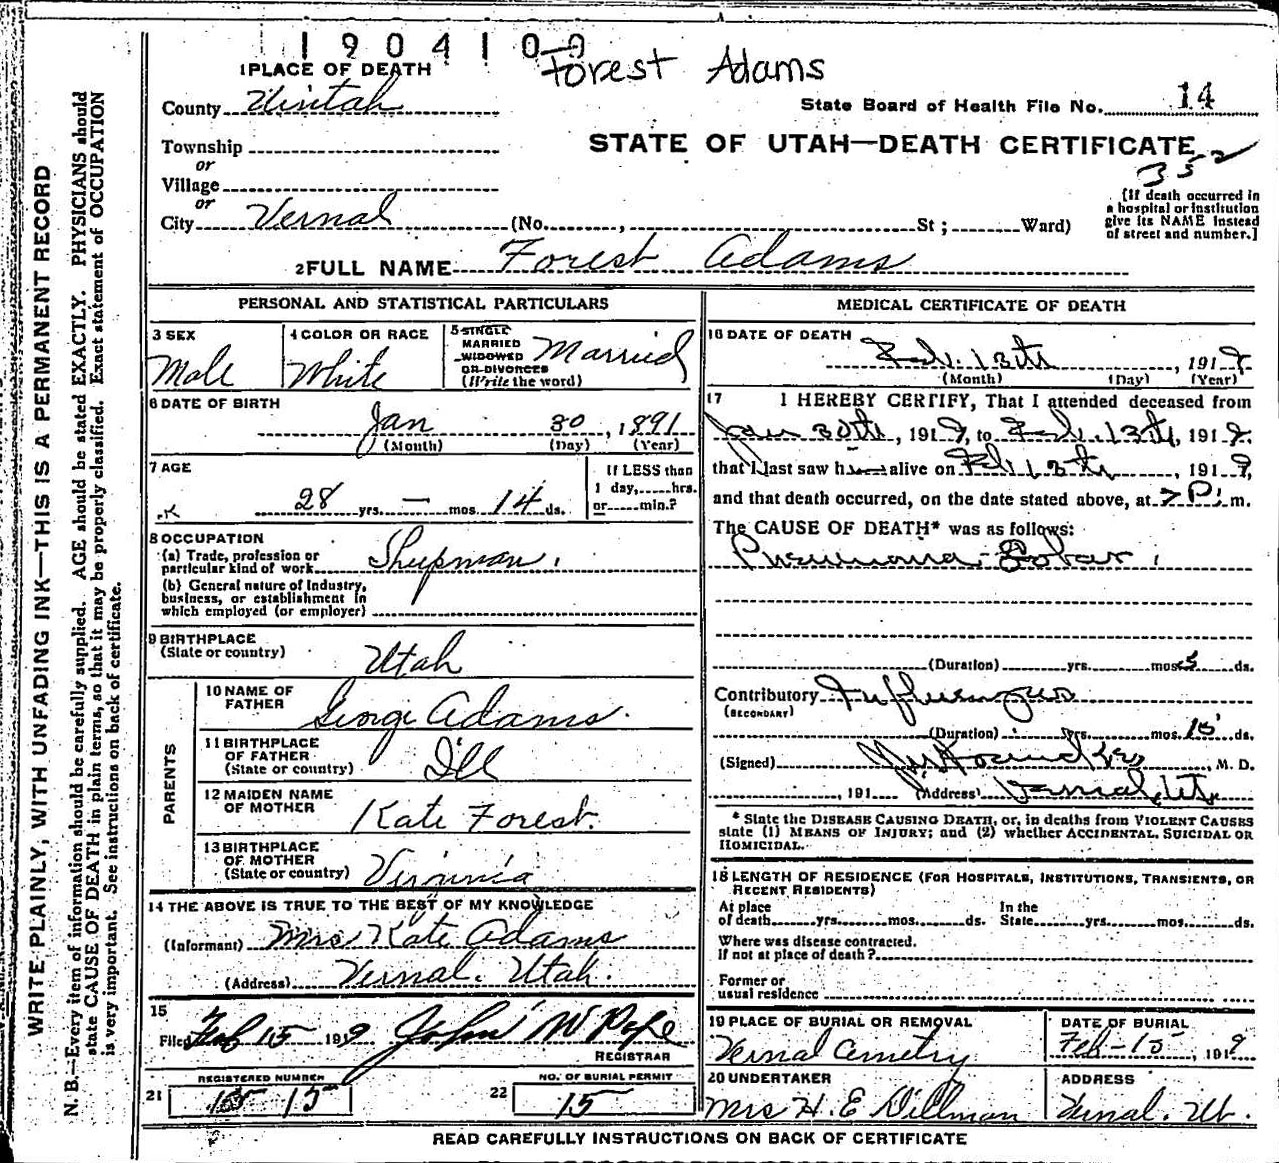 1904100
Forest Adams
1 PLACE OF DEATH
County Uintah
State Board of Health File No. 14
Township
STATE OF UTAH—DEATH CERTIFICATE
or
352
Village
or
City Vernal (No. , St ; Ward)
[If death occurred in
a hospital or institution
give its NAME instead
of street and number.]
2 FULL NAME Forest Adams
PERSONAL AND STATISTICAL PARTICULARS
3 SEX
Male
4 COLOR OR RACE
White
5 SINGLE
MARRIED
WIDOWED
OR DIVORCED
(Write the word)
Married
6 DATE OF BIRTH
Jan 30, 1891
(Month) (Day) (Year)
7 AGE
28 yrs. — mos. 14 ds.
If LESS than
1 day, hrs.
or min.?
8 OCCUPATION
(a) Trade, profession or
particular kind of work Sheepman
(b) General nature of Industry,
business, or establishment in
which employed (or employer)
9 BIRTHPLACE
(State or country)
Utah
PARENTS
10 NAME OF
FATHER
George Adams.
11 BIRTHPLACE
OF FATHER
(State or country)
Ill
12 MAIDEN NAME
OF MOTHER
Kate Forest.
13 BIRTHPLACE
OF MOTHER
(State or country)
Virginia
14 THE ABOVE IS TRUE TO THE BEST OF MY KNOWLEDGE
(Informant) Mrs Kate Adams
(Address) Vernal. Utah.
15
Filed Feb 15 1919 John W Pope
REGISTRAR
REGISTERED NUMBER
21 15
NO. OF BURIAL PERMIT
22 15
MEDICAL CERTIFICATE OF DEATH
16 DATE OF DEATH
Feb. 13th, 1919
(Month) (Day) (Year)
17 I HEREBY CERTIFY, That I attended deceased from
Jan 30th, 1919, to Feb. 13th, 1919.
that I last saw him alive on Feb 13th, 1919,
and that death occurred, on the date stated above, at 7 P. m.
The CAUSE OF DEATH* was as follows:
Pneumonia - Lobar.
(Duration) yrs. mos. 5 ds.
Contributory Influenza
(SECONDARY)
(Duration) yrs. mos. 15 ds.
(Signed) , M. D.
, 191 (Address) Vernal, Ut.
* State the DISEASE CAUSING DEATH, or, in deaths from VIOLENT CAUSES
state (1) MEANS OF INJURY; and (2) whether ACCIDENTAL, SUICIDAL OR
HOMICIDAL.
18 LENGTH OF RESIDENCE (FOR HOSPITALS, INSTITUTIONS, TRANSIENTS, OR
RECENT RESIDENTS)
At place In the
of death yrs. mos. ds. State yrs. mos. ds.
Where was disease contracted.
If not at place of death?
Former or
usual residence
19 PLACE OF BURIAL OR REMOVAL
Vernal Cemetry
DATE OF BURIAL
Feb-15, 1919
20 UNDERTAKER
Mrs H. E Dillman
ADDRESS
Vernal. Ut.
READ CAREFULLY INSTRUCTIONS ON BACK OF CERTIFICATE
WRITE PLAINLY, WITH UNFADING INK—THIS IS A PERMANENT RECORD
N. B.—Every item of information should be carefully supplied. AGE should be stated EXACTLY. PHYSICIANS should
state CAUSE OF DEATH in plain terms, so that it may be properly classified. Exact statement of OCCUPATION
is very important. See instructions on back of certificate.